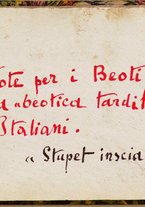 ote per i Beoti
a beotica tardit
Italiani.
« Stupet inscia